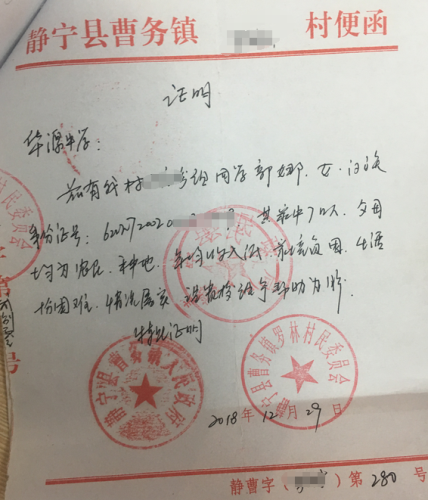 静宁县曹务镇 村便函
证明
华源中学：
兹有我村 组同学郭娜，女，汉族
身份证号：6227202 其家中 口人，父母
均为农民，种地，年均收入低，家境贫困，生活
十分困难，情况属实，望贵校给予帮助为盼
特此证明
静宁县曹务镇人民政府
静宁县曹务镇罗林村民委员会
2018年12月29日
村民委员会
静曹字（ ）第280号